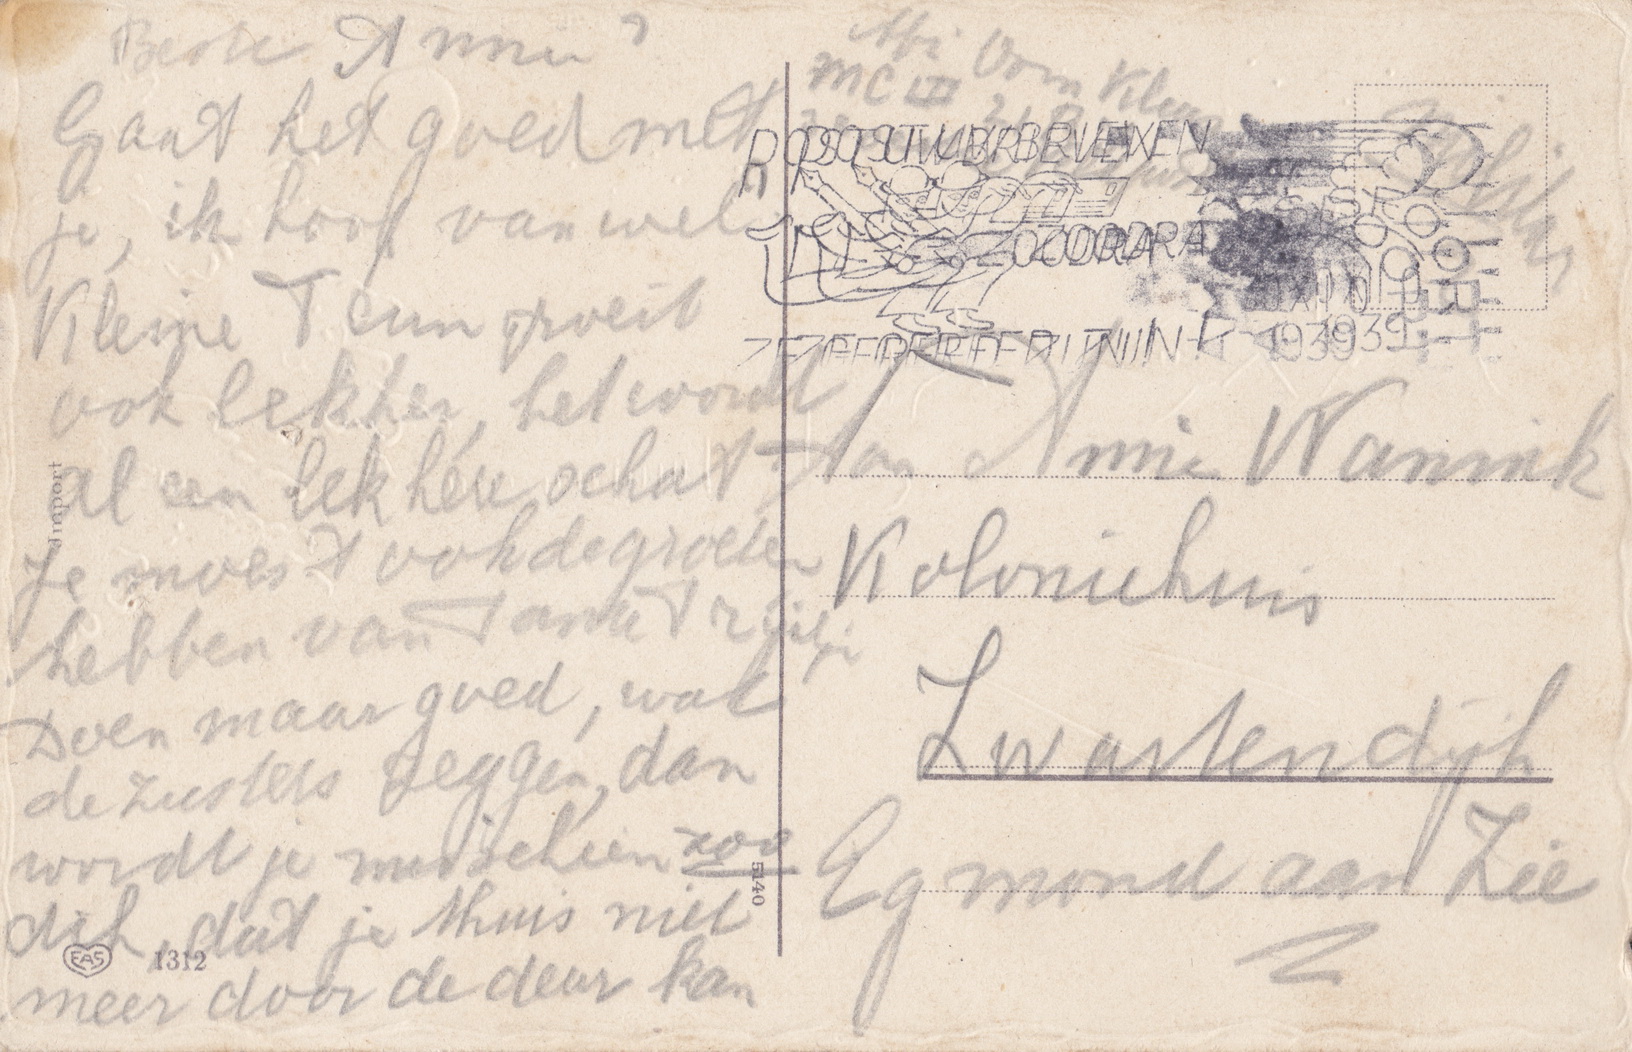 Beste Annie
Gaat het goed met
je, ik hoop van wel
Kleine Teun groeit
ook lekker, het wordt
al een lekkere schat
Je moest ook de groeten
hebben van Tante
Doen maar goed, wat
de zusters zeggen, dan
wordt je misschien zoo
dik, dat je thuis niet
meer door de deur kan
Import
EAS
1312
5140
Afz
POSTDUIVEN
1939
Aan Annie Wanink
Koloniehuis
Zwartendijk
Egmond aan Zee